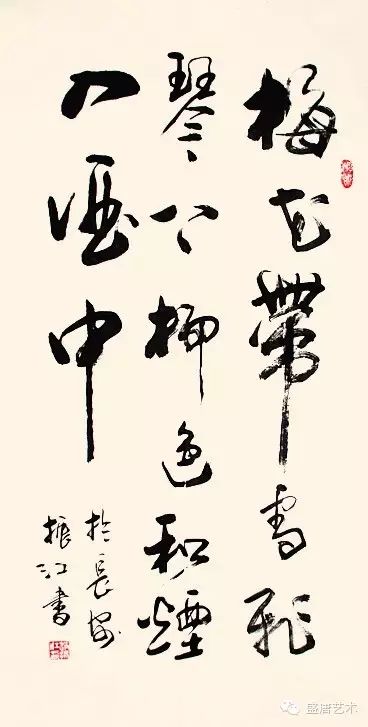 梅花帶雪飛
琴上柳色和煙
入酒中
於長安
振江書
盛唐艺术